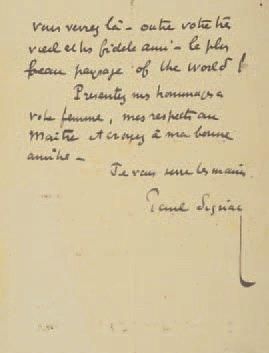 vous verrez là – outre votre très
vieil et très fidèle ami – le plus
beau paysage of the world !
Presentez mes hommages a
votre femme, mes respects au
Maître et croyez à ma bonne
amitié –
Je vous serre les mains
Paul Signac